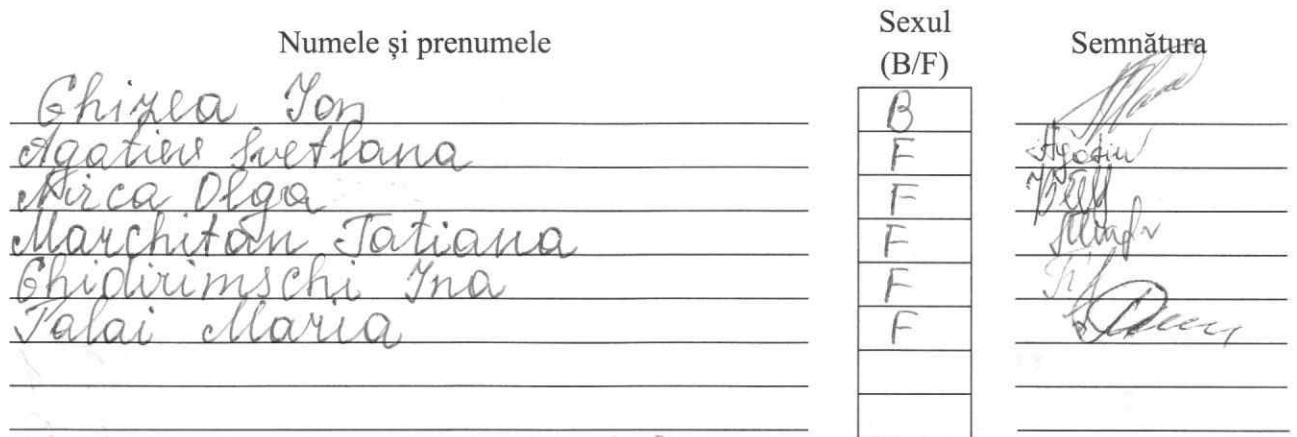 Numele și prenumele Sexul (B/F) Semnătura
Ghizea Ion B
Agatiev Svetlana F Agatiev
Nirca Olga F
Marchitan Tatiana F
Ghidirimschi Ina F
Palai Maria F